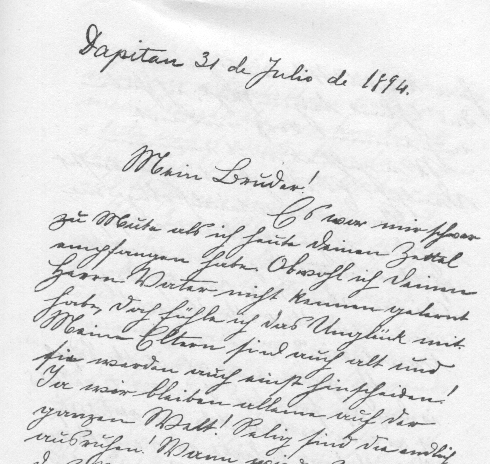 Dapitan 31 de Julio de 1894.
Mein Bruder!
Es war mir schwer
zu Mute als ich heute deinen Zettel
empfangen habe. Obwohl ich deinen
Herrn Vater nicht kennen gelernt
habe, doch fühle ich das Unglück mit.
Meine Eltern sind auch alt und
sie werden auch einst hinscheiden!
Ja wir bleiben alleine auf der
ganzen Welt! Selig sind die endlich
ausruhen! Wann